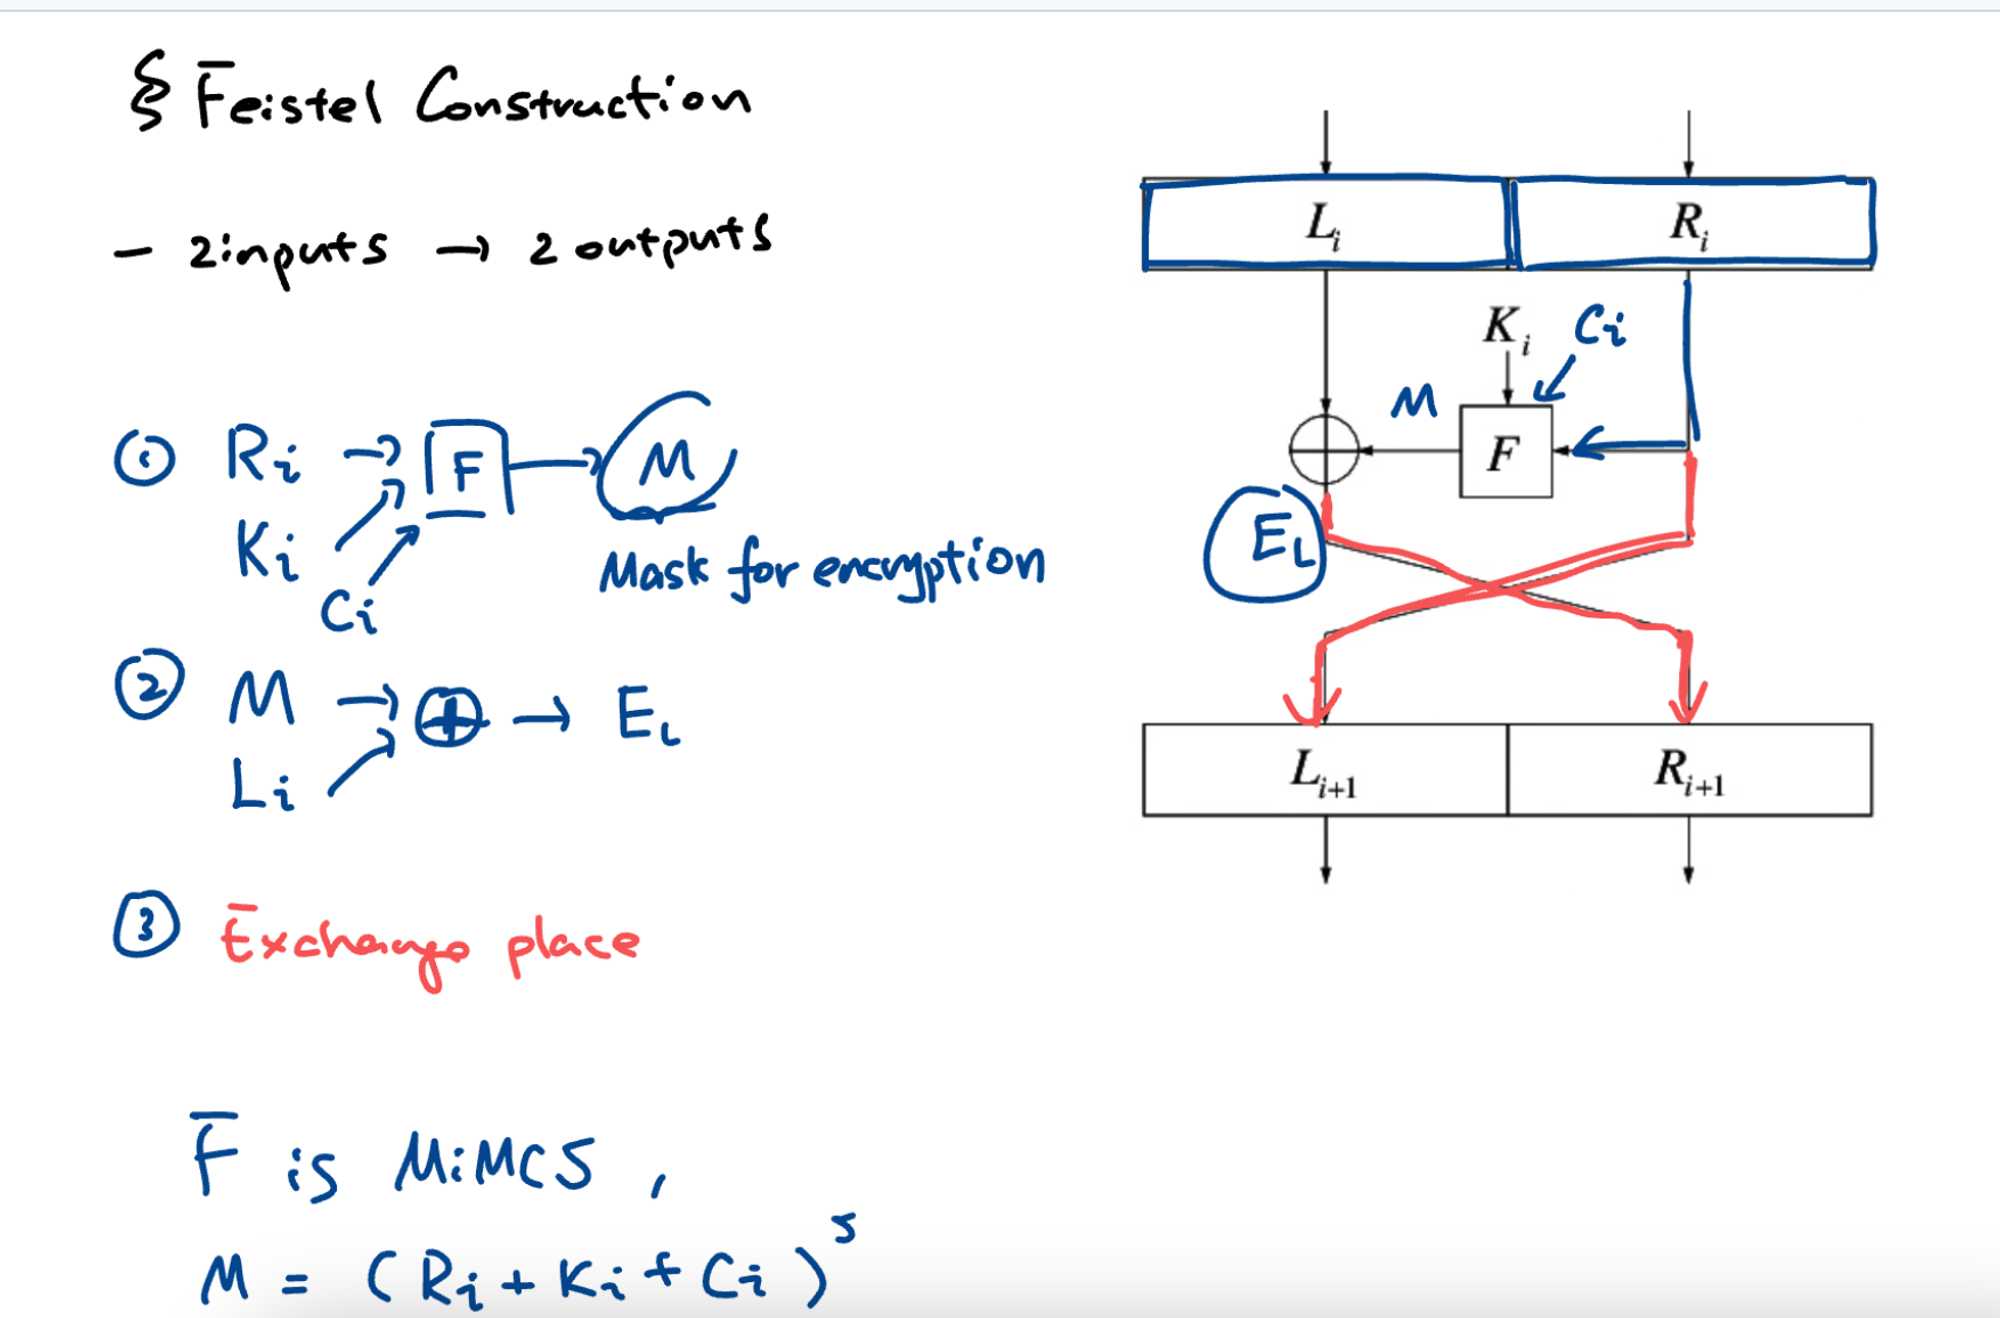 § Feistel Construction
- 2 inputs → 2 outputs
① Ri → F → M
Ki
Ci
Mask for encryption
② M → ⊕ → EL
Li
③ Exchange place
F is MiMC5,
M = (Ri + Ki + Ci)^5
Li Ri
Ki Ci
M F
EL
Li+1 Ri+1